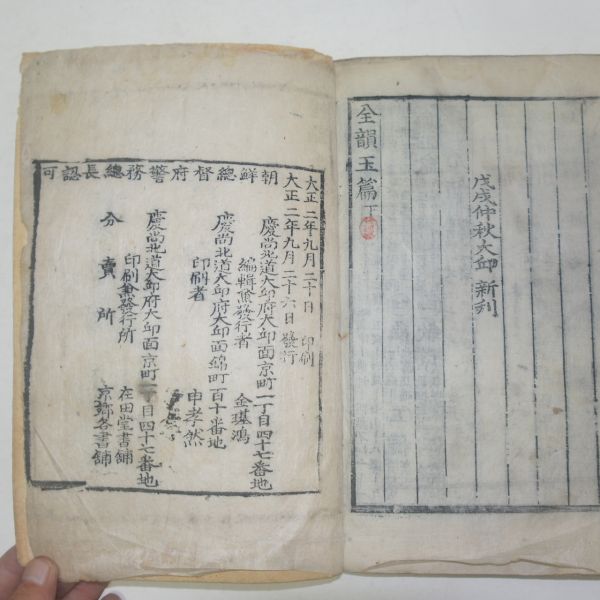 戊戌仲秋大邱 新刋
全韻玉篇 下
朝鮮總督府警務總長認可
大正二年九月二十日 印刷
大正二年九月二十六日 發行
慶尙北道大邱府大邱面京町一丁目四十七番地
編輯兼發行者 金璂鴻
慶尙北道大邱府大邱面錦町百十番地
印刷者 申孝然
慶尙北道大邱府大邱面京町一丁目四十七番地
印刷兼發行所 在田堂書鋪
分賣所 京鄕各書鋪